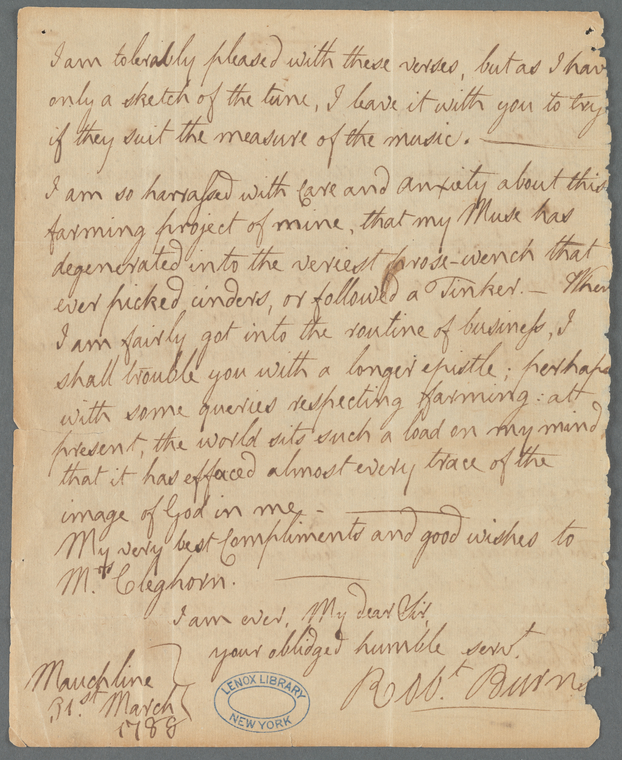 I am tolerably pleased with these verses, but as I hav
only a sketch of the tune, I leave it with you to try
if they suit the measure of the music. —
I am so harrassed with Care and anxiety about this
farming project of mine, that my Muse has
degenerated into the veriest prose-wench that
ever picked cinders, or followed a Tinker. — When
I am fairly got into the routine of business, I
shall trouble you with a longer epistle; perhaps
with some queries respecting farming: at
present, the world sits such a load on my mind
that it has effaced almost every trace of the
image of God in me. —
My very best Compliments and good wishes to
Mrs Cleghorn. —
I am ever, My dear Sir,
your oblidged humble servt.
Robt. Burns
Mauchline
31st. March
1788
LENOX LIBRARY
NEW YORK